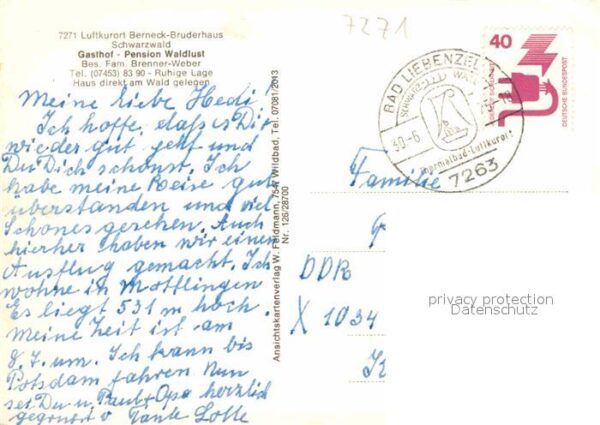 7271
7271 Luftkurort Berneck-Bruderhaus
Schwarzwald
Gasthof - Pension Waldlust
Bes. Fam. Brenner-Weber
Tel. (07453) 83 90 - Ruhige Lage
Haus direkt am Wald gelegen
Meine liebe Hedi!
Ich hoffe, daß es Dir
wieder gut geht und
Du Dich schonst. Ich
habe meine Reise gut
überstanden und viel
Schönes gesehen. Auch
hierher haben wir einen
Ausflug gemacht. Ich
wohne in Möttlingen
Es liegt 531 m hoch.
Meine Zeit ist am
8. 7. um. Ich kann bis
Potsdam fahren Nun
sei Du u. Paul + Opa herzlich
gegrüßt v Tante Lotte
Ansichtskartenverlag W. Feldmann, 7547 Wildbad, Tel. 07081/2013
Nr. 126/28700
BAD LIEBENZELL
SCHWARZWALD
30.-6.
Thermalbad-Luftkurort
7263
40
DEUTSCHE BUNDESPOST
Familie
DDR
X 1034
privacy protection
Datenschutz